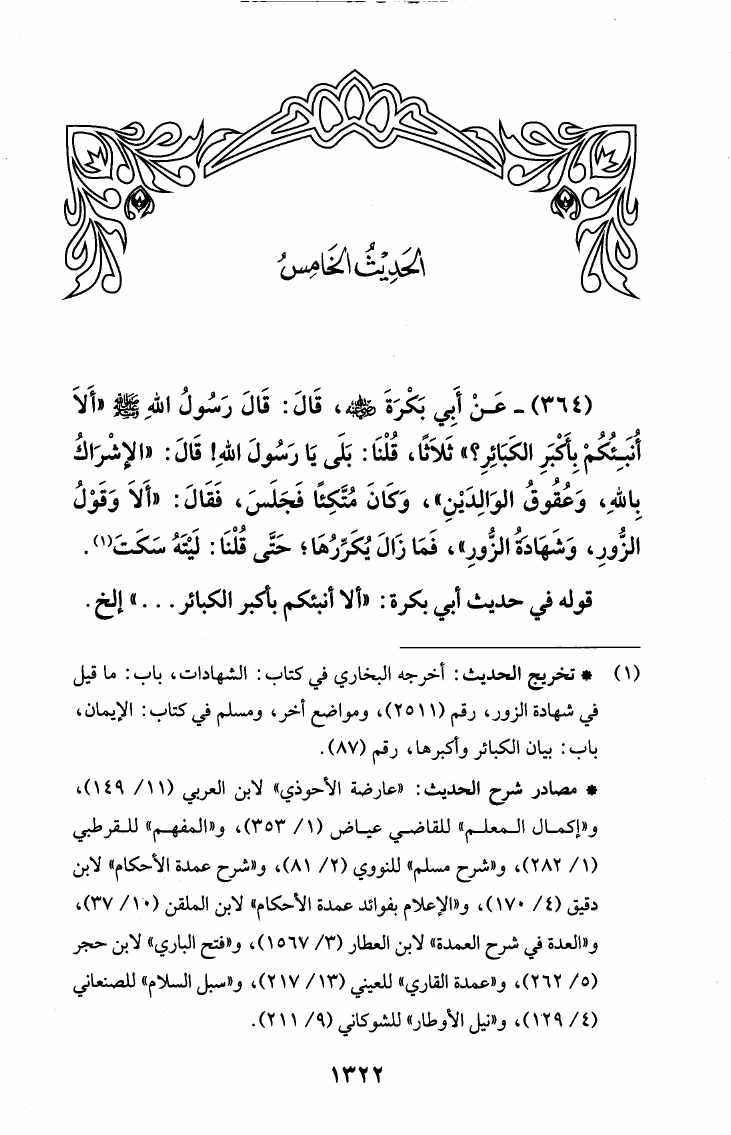 الحَدِيْثُ الخَامِسُ
(٣٦٤) - عَـنْ أَبِي بَكْرَةَ رضي الله عنه، قَالَ: قَالَ رَسُولُ اللهِ ﷺ «أَلاَ
أُنَبِـئُكُمْ بِأَكْبَرِ الكَبَائِرِ؟» ثَلاَثًا، قُلْنَا: بَلَى يَا رَسُولَ اللهِ! قَالَ: «الإِشْرَاكُ
بِاللهِ، وَعُقُوقُ الوَالِدَيْنِ»، وَكَانَ مُتَّكِئًا فَجَلَسَ، فَقَالَ: «أَلاَ وَقَوْلُ
الزُّورِ، وَشَهَادَةُ الزُّورِ»، فَمَا زَالَ يُكَرِّرُهَا؛ حَتَّى قُلْنَا: لَيْتَهُ سَكَتَ(١).
قوله في حديث أبي بكرة: «ألا أنبئكم بأكبر الكبائر...» إلخ.
(١) * تخريج الحديث: أخرجه البخاري في كتاب: الشهادات، باب: ما قيل
في شهادة الزور، رقم (٢٥١١)، ومواضع أخر، ومسلم في كتاب: الإيمان،
باب: بيان الكبائر وأكبرها، رقم (٨٧).
* مصادر شرح الحديث: «عارضة الأحوذي» لابن العربي (١١/ ١٤٩)،
و«إكمـال الـمعلـم» للقاضـي عيـاض (١/ ٣٥٣)، و«المفهـم» للـقرطبي
(١/ ٢٨٢)، و«شرح مسلم» للنووي (٢/ ٨١)، و«شرح عمدة الأحكام» لابن
دقيق (٤/ ١٧٠)، و«الإعلام بفوائد عمدة الأحكام» لابن الملقن (١٠/ ٣٧)،
و«العدة في شرح العمدة» لابن العطار (٣/ ١٥٦٧)، و«فتح الباري» لابن حجر
(٥/ ٢٦٢)، و«عمدة القاري» للعيني (١٣/ ٢١٧)، و«سبل السلام» للصنعاني
(٤/ ١٢٩)، و«نيل الأوطار» للشوكاني (٩/ ٢١١).
١٣٢٢